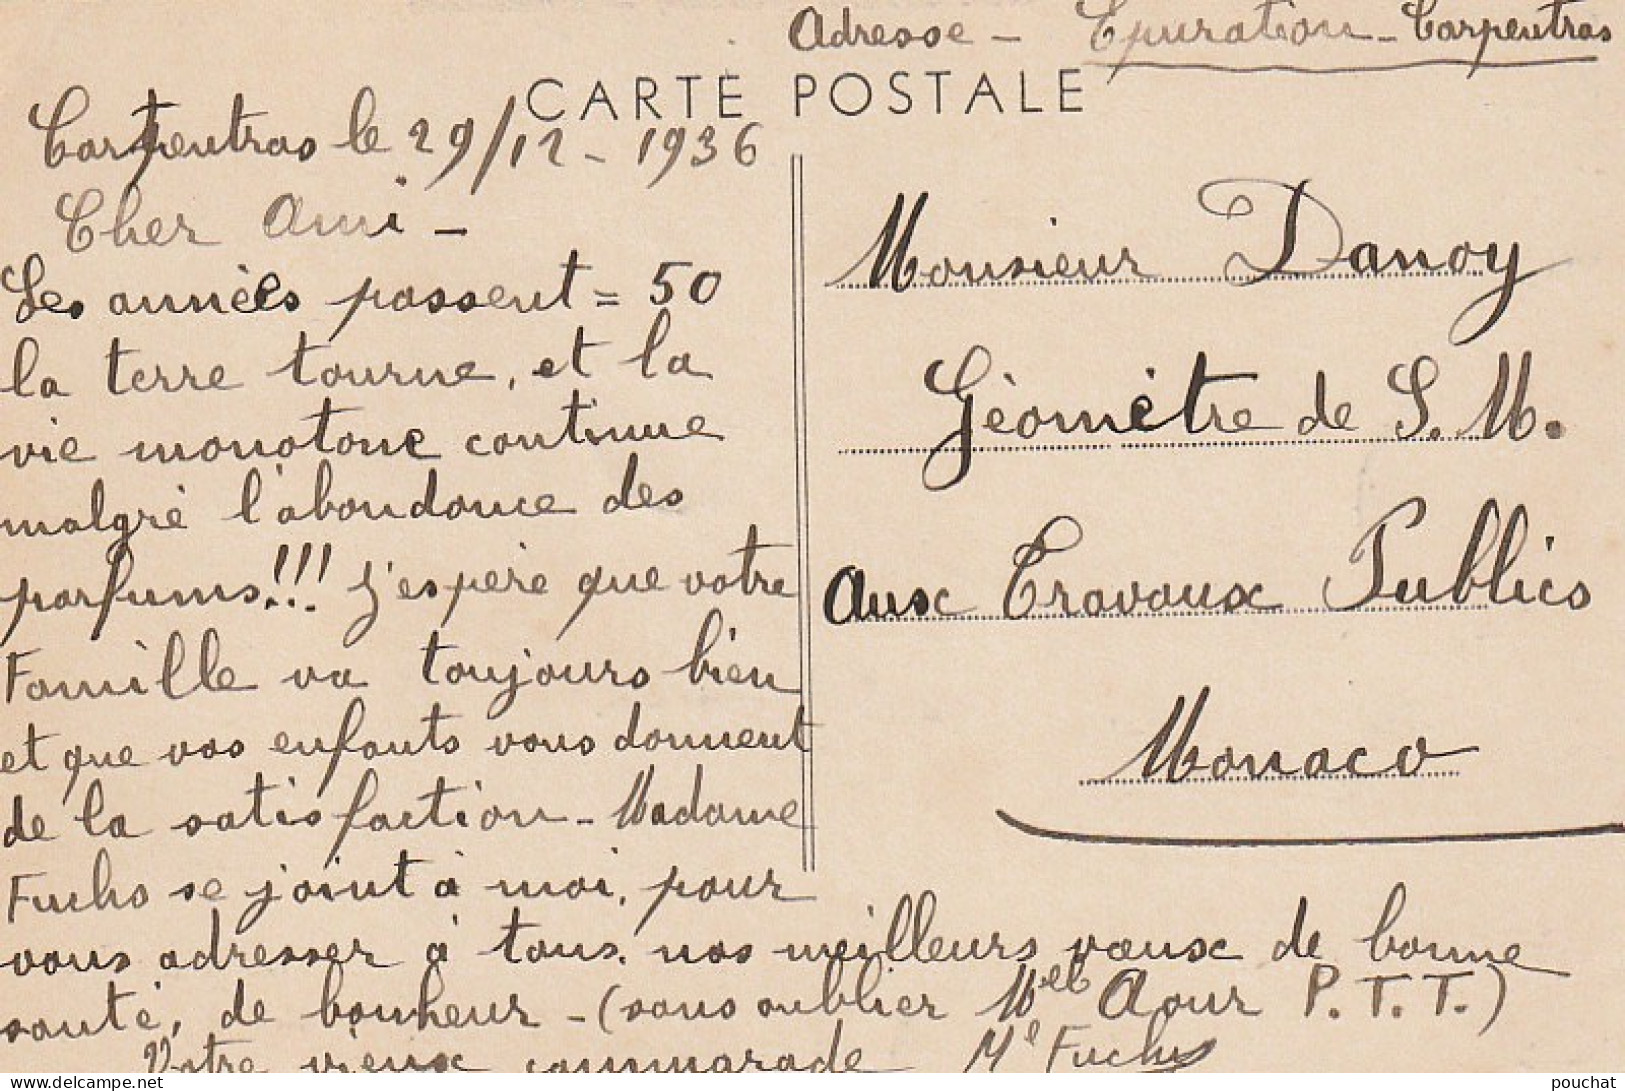 Adresse - Épuration - Carpentras
CARTE POSTALE
Carpentras le 29/12 - 1936
Cher Ami -
Les années passent = 50
la terre tourne, et la
vie monotone continue
malgré l'abondance des
parfums!!! j'espère que votre
Famille va toujours bien
et que vos enfants vous donnent
de la satisfaction - Madame
Fuchs se joint à moi, pour
vous adresser à tous, nos meilleurs vœux de bonne
santé, de bonheur - (sans oublier Melle Aour P.T.T.)
Votre vieux cammarade Ml Fuchs
Monsieur Danoy
Géomètre de S. M.
Aux Travaux Publics
Monaco
pouchat